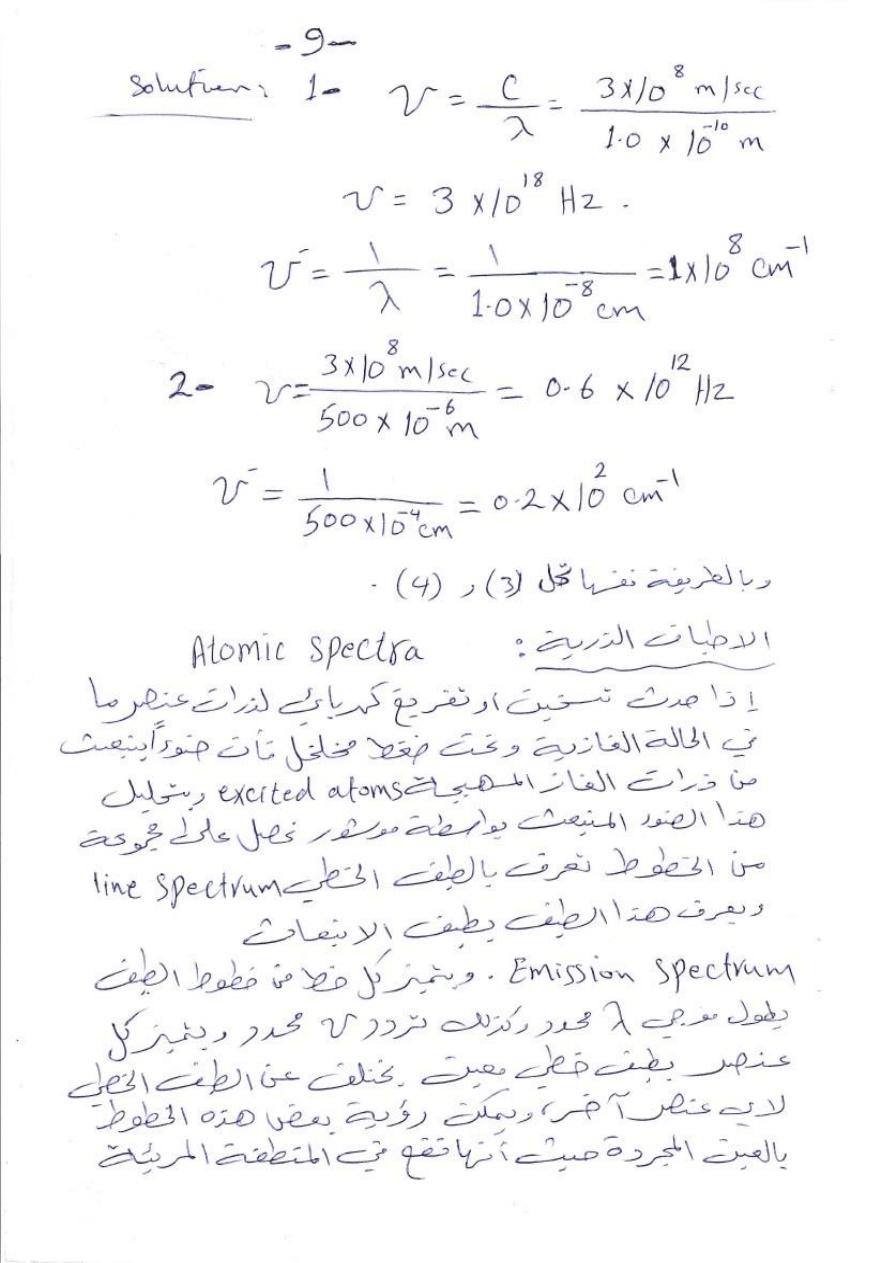 -9-
Solution: 1- ν = C/λ = 3x10⁸ m/sec / 1.0 x 10⁻¹⁰ m
ν = 3 x10¹⁸ Hz .
ν̄ = 1/λ = 1 / 1.0 x 10⁻⁸ cm = 1x10⁸ cm⁻¹
2- ν = 3x10⁸ m/sec / 500 x 10⁻⁶ m = 0.6 x 10¹² Hz
ν̄ = 1 / 500 x10⁻⁴ cm = 0.2 x 10² cm⁻¹
وبالطريقة نفسها تحل (3) و (4) .
الاطياف الذرية : Atomic Spectra
إذا حدث تسخين او تفريغ كهربائي لذرات عنصر ما
في الحالة الغازية وتحت ضغط مخلخل فأن ضوءاً ينبعث
من ذرات الغاز المهيجة excited atoms وبتحليل
هذا الضوء المنبعث بواسطة موشور نحصل على مجموعة
من الخطوط تعرف بالطيف الخطي line spectrum
ويعرف هذا الطيف بطيف الانبعاث
Emission Spectrum . ويتميز كل خط من خطوط الطيف
بطول موجي λ محدد وكذلك تردد ν محدد ويتميز كل
عنصر بطيف خطي معين يختلف عن الطيف الخطي
لاي عنصر آخر، ويمكن رؤية بعض هذه الخطوط
بالعين المجردة حيث أنها تقع في المنطقة المرئية